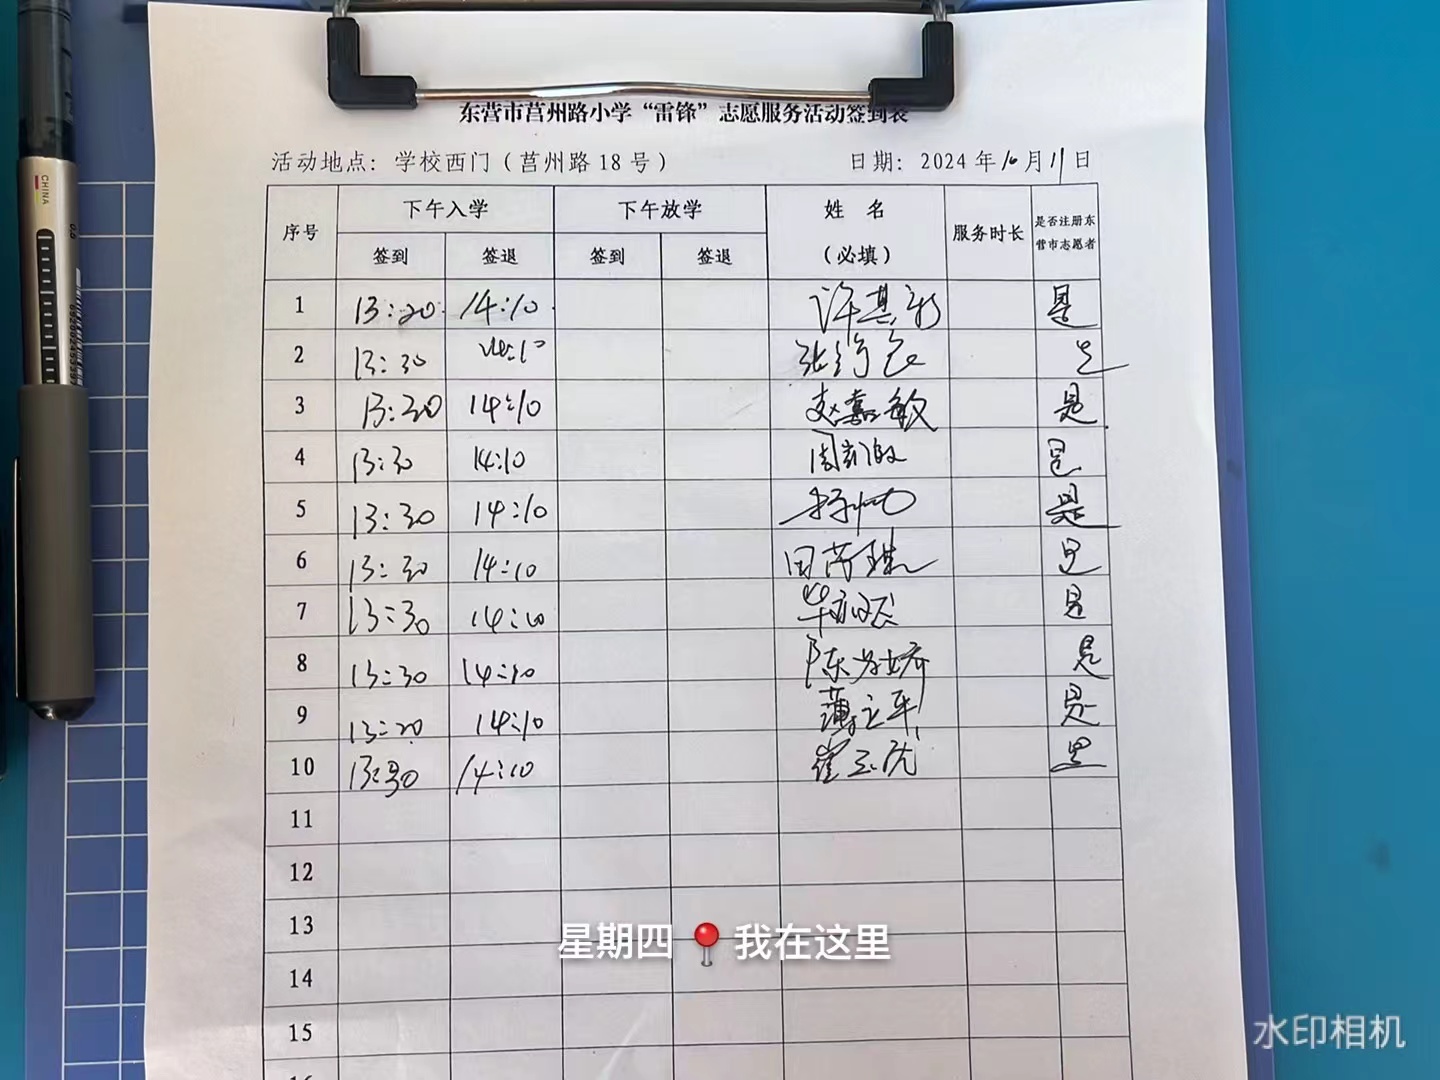 东营市莒州路小学“雷锋”志愿服务活动签到表
活动地点：学校西门（莒州路18号） 日期：2024年10月11日
序号 下午入学 下午放学 姓 名（必填） 服务时长 是否注册东营市志愿者
签到 签退 签到 签退
1 13:20 14:10 许其彬 是
2 13:30 14:10 是
3 13:30 14:10 赵嘉敏 是
4 13:30 14:10 是
5 13:30 14:10 是
6 13:30 14:10 是
7 13:30 14:10 是
8 13:30 14:10 陈 娇 是
9 13:20 14:10 薄立军 是
10 13:30 14:10 崔玉 是
11
12
13
14
15
16
星期四 我在这里
水印相机
CHINA